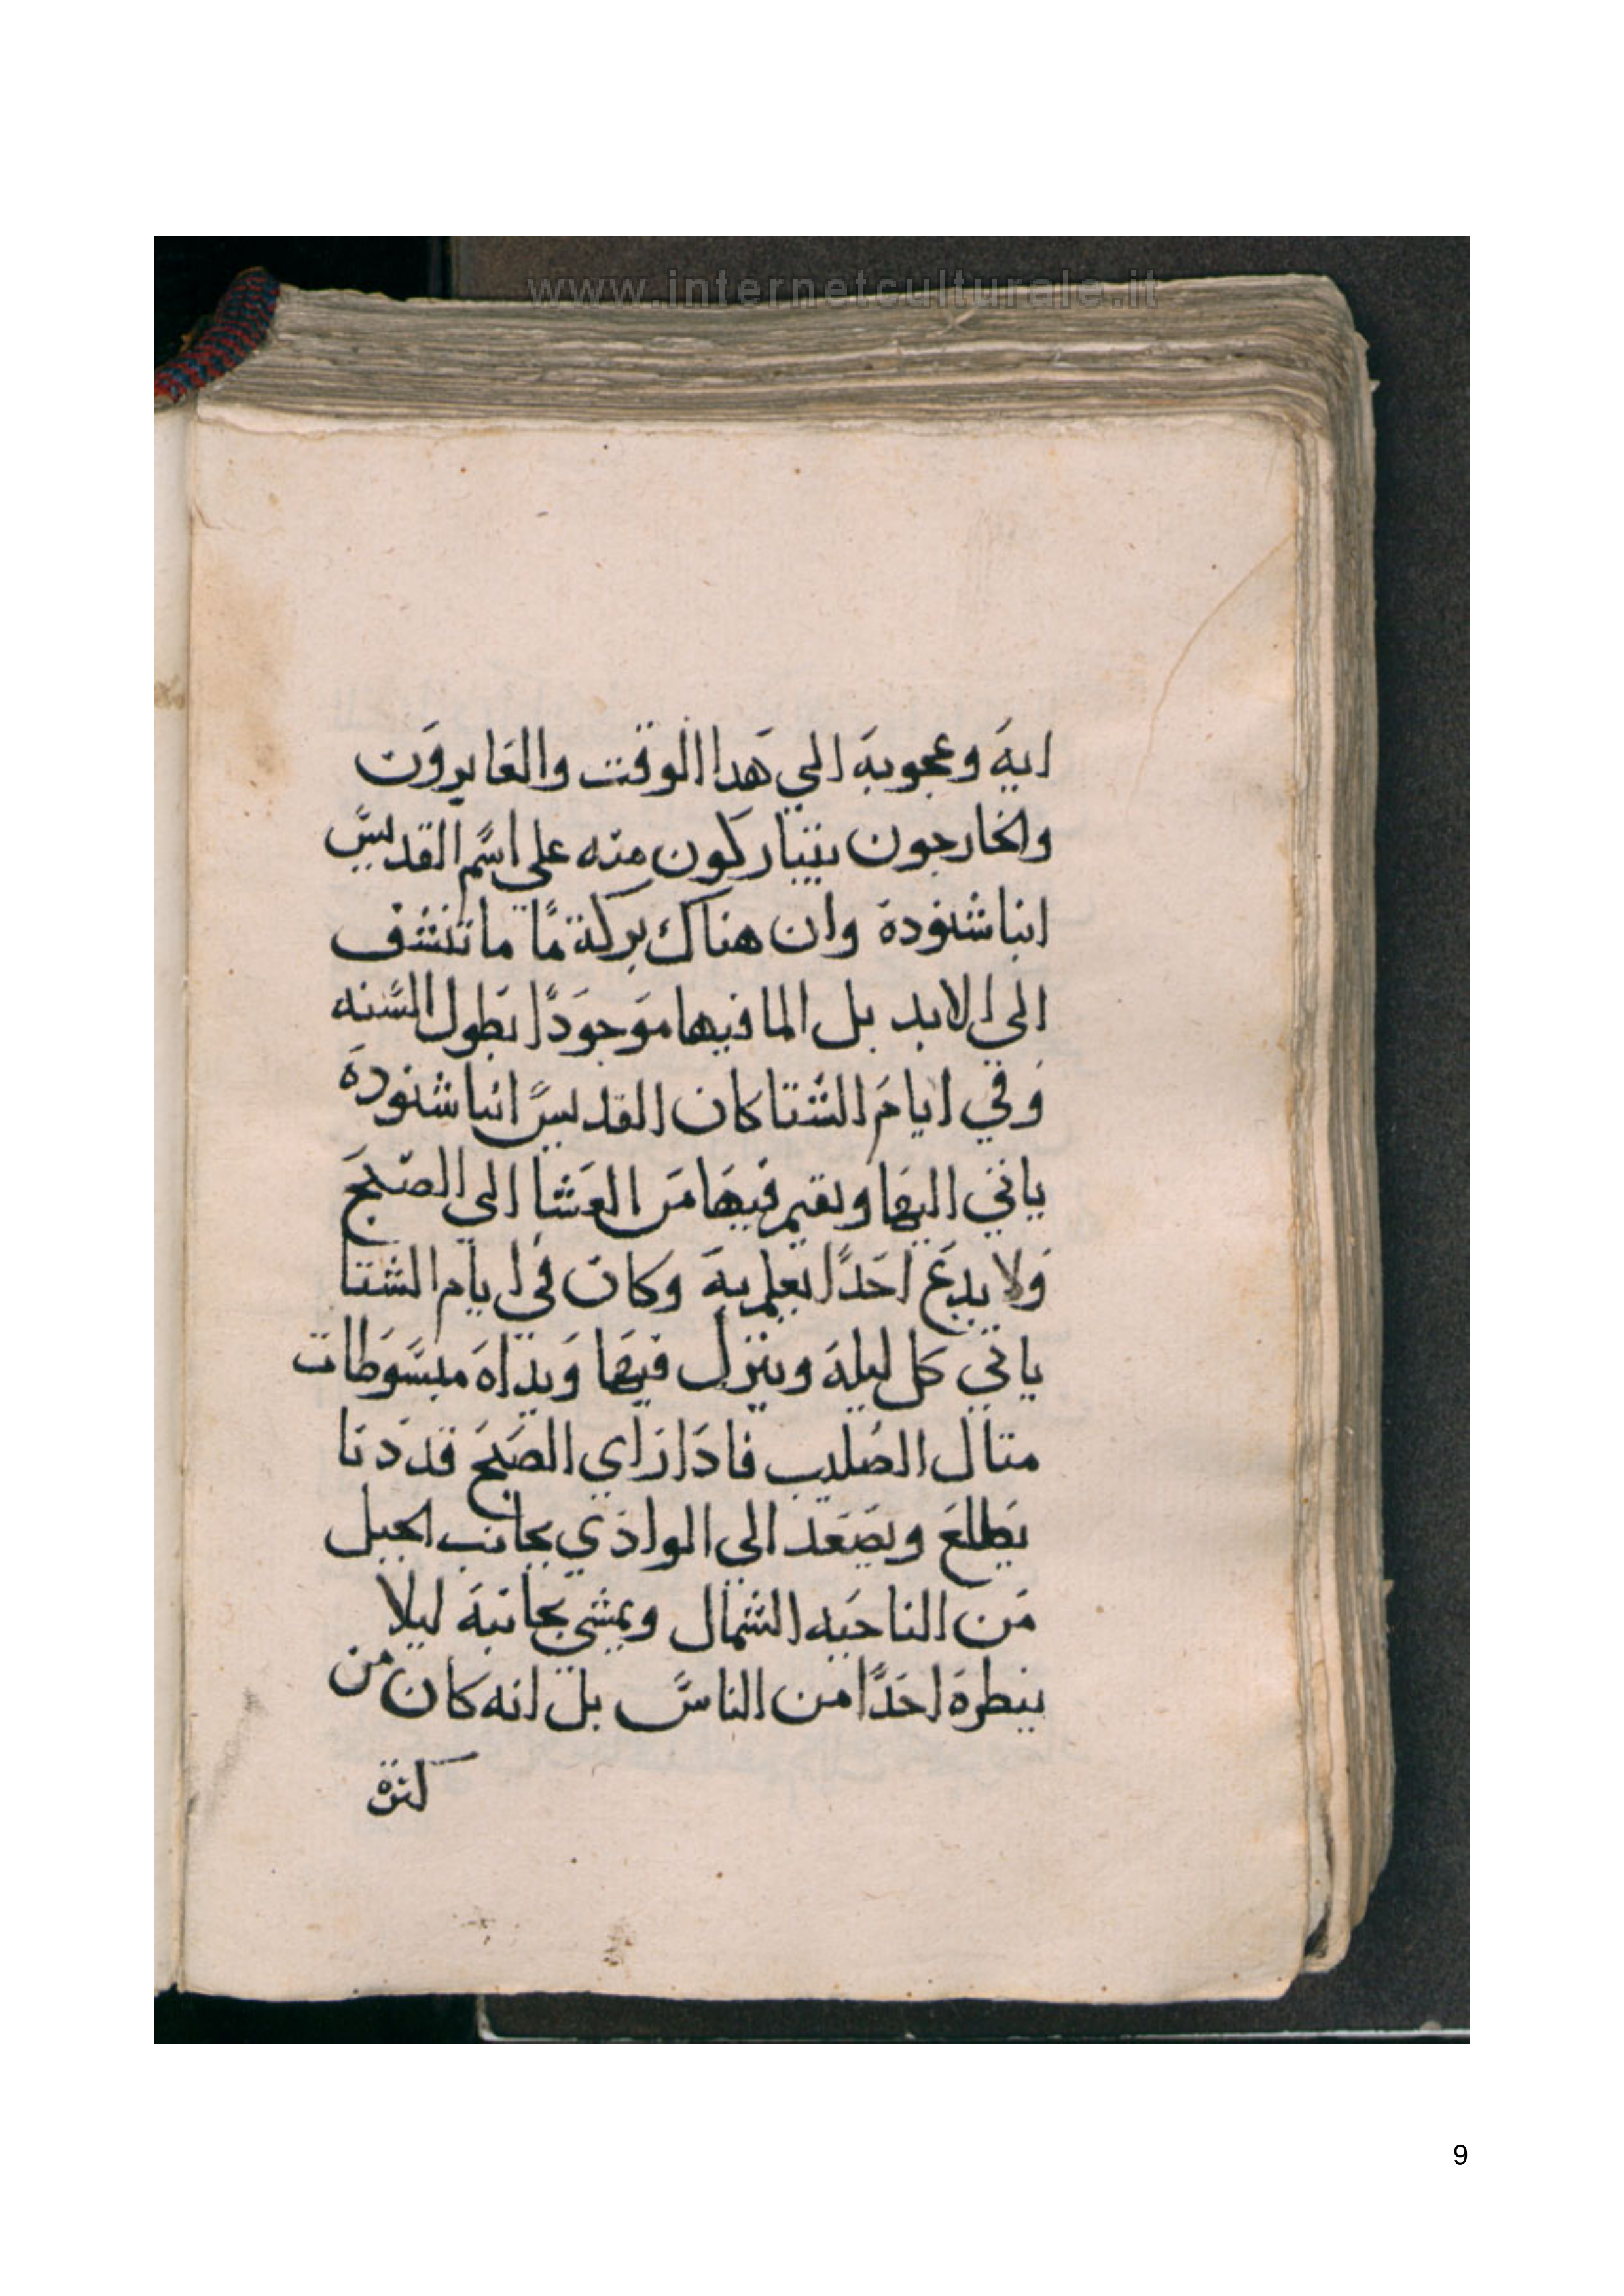 www.internetculturale.it
ايه وعجوبه الي هدا الوقت والعابرون
والخارجون يتباركون منه علي اسم القديس
انبا شنودة وان هناك بركة ما ما تنشف
الي الابد بل الما فيها موجودا بطول السنه
وفي ايام الشتا كان القديس انبا شنودة
ياتي اليها ويقيم فيها من العشا الي الصبح
ولا يدع احدا يعلم به وكان في ايام الشتا
ياتي كل ليله وينزل فيها ويداه مبسوطات
متال الصليب فادا راي الصبح قد دنا
يطلع ويصعد الي الوادي بجانب الجبل
من الناحيه الشمال ويمشي بجانبه ليلا
ينطره احدا من الناس بل انه كان من
كترة
9